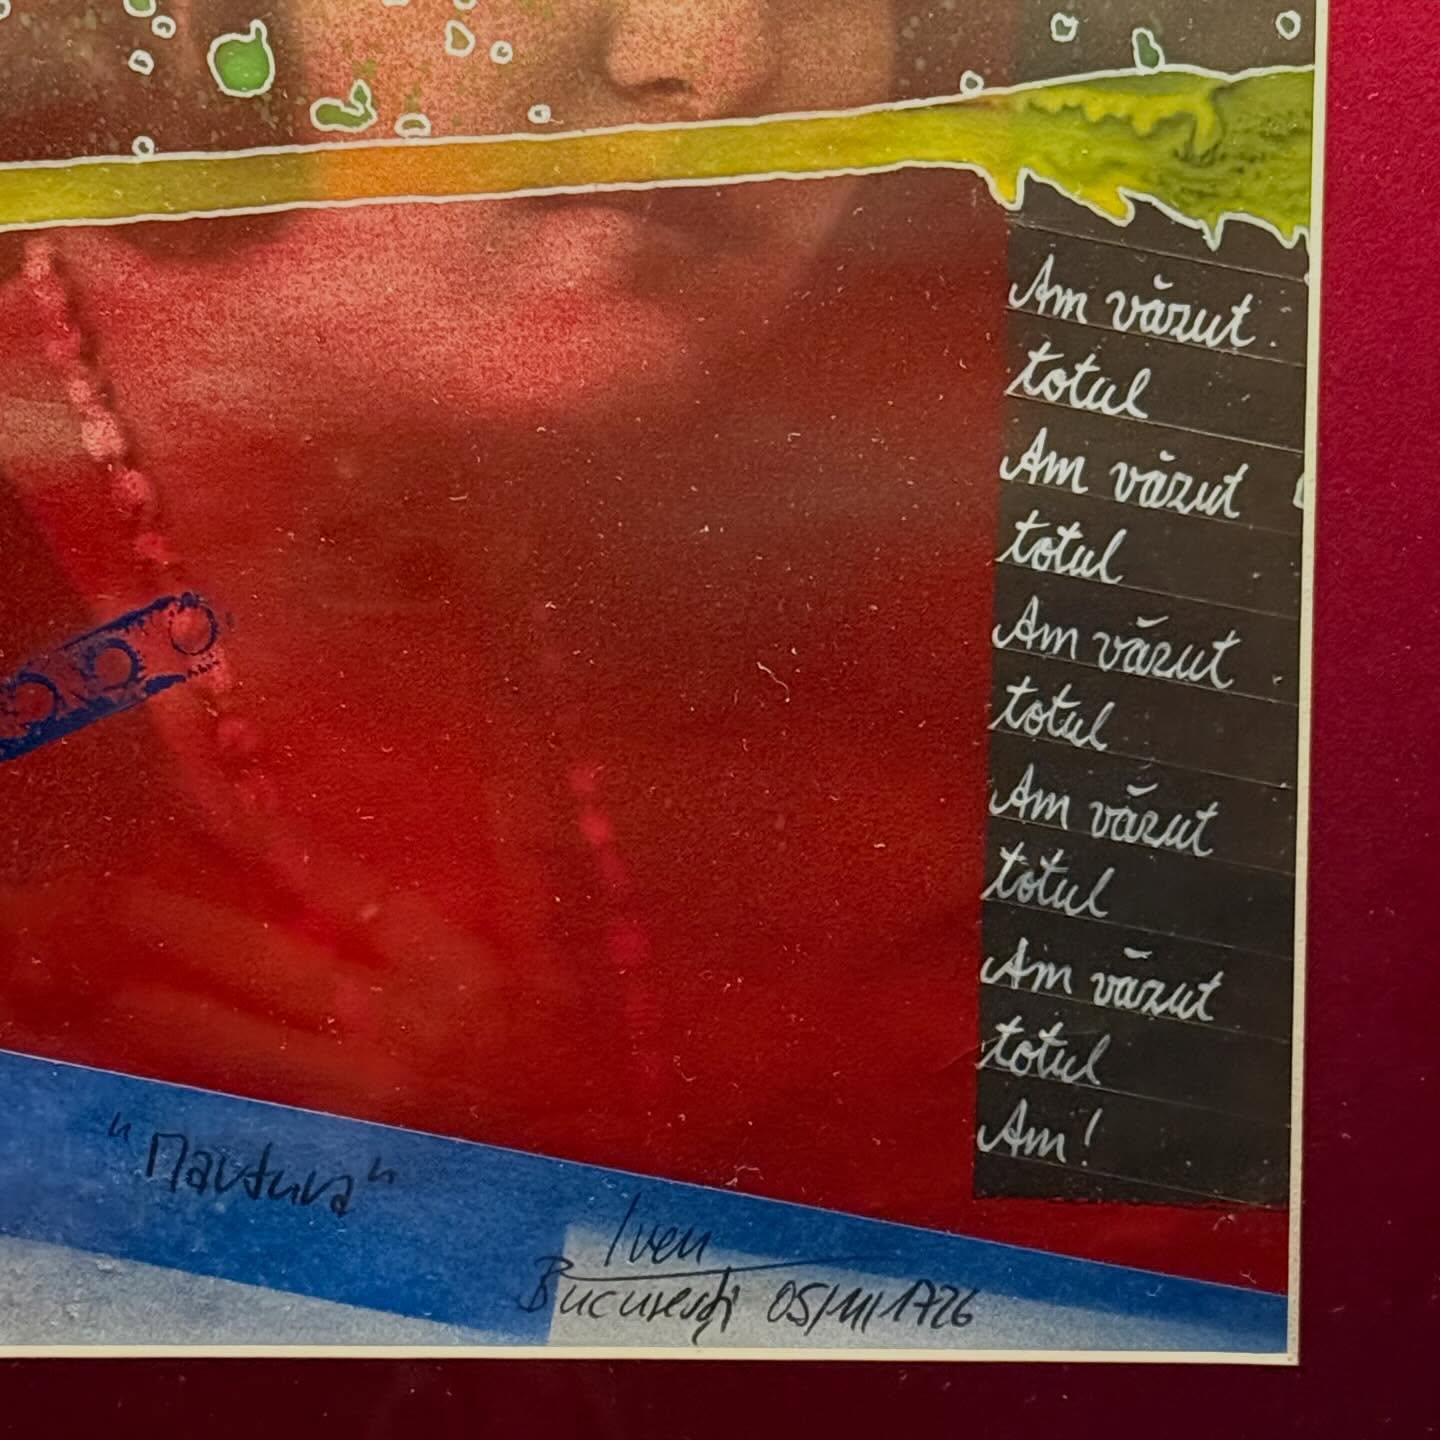 Am văzut
totul
Am văzut
totul
Am văzut
totul
Am văzut
totul
Am văzut
totul
Am!
"Martura"
Iven
București 05/11/1726